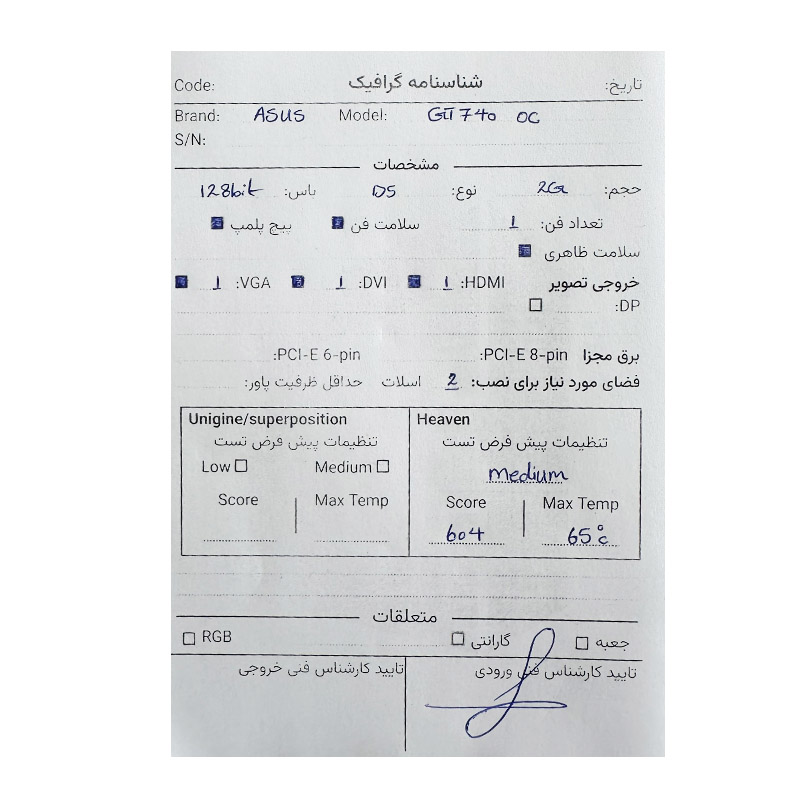 تاریخ: شناسنامه گرافیک Code:
Brand: ASUS Model: GT 740 OC
S/N:
مشخصات
حجم: 2G نوع: D5 باس: 128bit
تعداد فن: 1 سلامت فن پیچ پلمپ
سلامت ظاهری
خروجی تصویر HDMI: 1 DVI: 1 VGA: 1
DP:
برق مجزا PCI-E 8-pin: PCI-E 6-pin:
فضای مورد نیاز برای نصب: 2 اسلات حداقل ظرفیت پاور:
Unigine/superposition
تنظیمات پیش فرض تست
Low Medium
Score Max Temp
Heaven
تنظیمات پیش فرض تست
medium
Score Max Temp
604 65°c
متعلقات
جعبه گارانتی RGB
تایید کارشناس فنی ورودی تایید کارشناس فنی خروجی